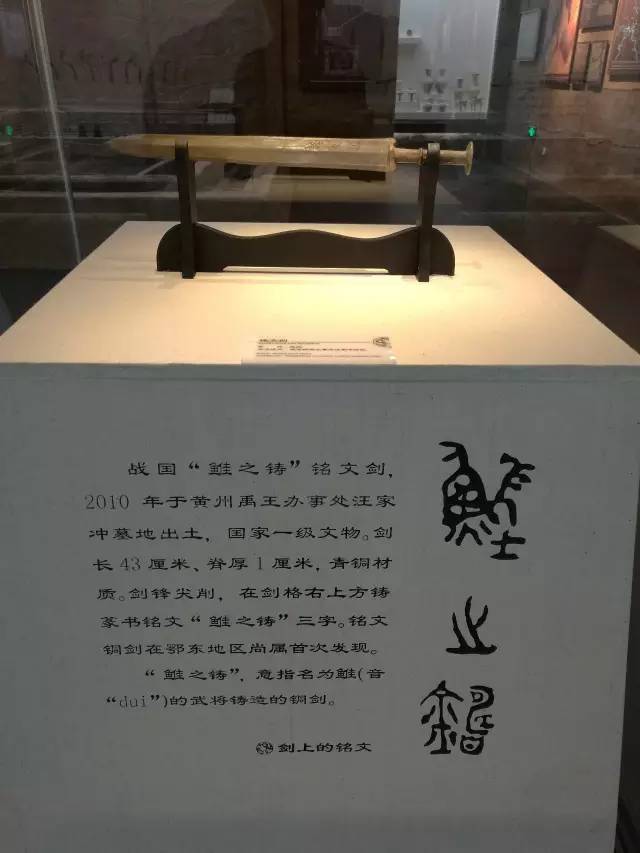 战国“鮏之铸”铭文剑，
2010 年于黄州禹王办事处汪家
冲墓地出土，国家一级文物。剑
长 43 厘米、脊厚 1 厘米，青铜材
质。剑锋尖削，在剑格右上方铸
篆书铭文“鮏之铸”三字。铭文
铜剑在鄂东地区尚属首次发现。
“鮏之铸”，意指名为鮏(音
“dui”)的武将铸造的铜剑。
剑上的铭文